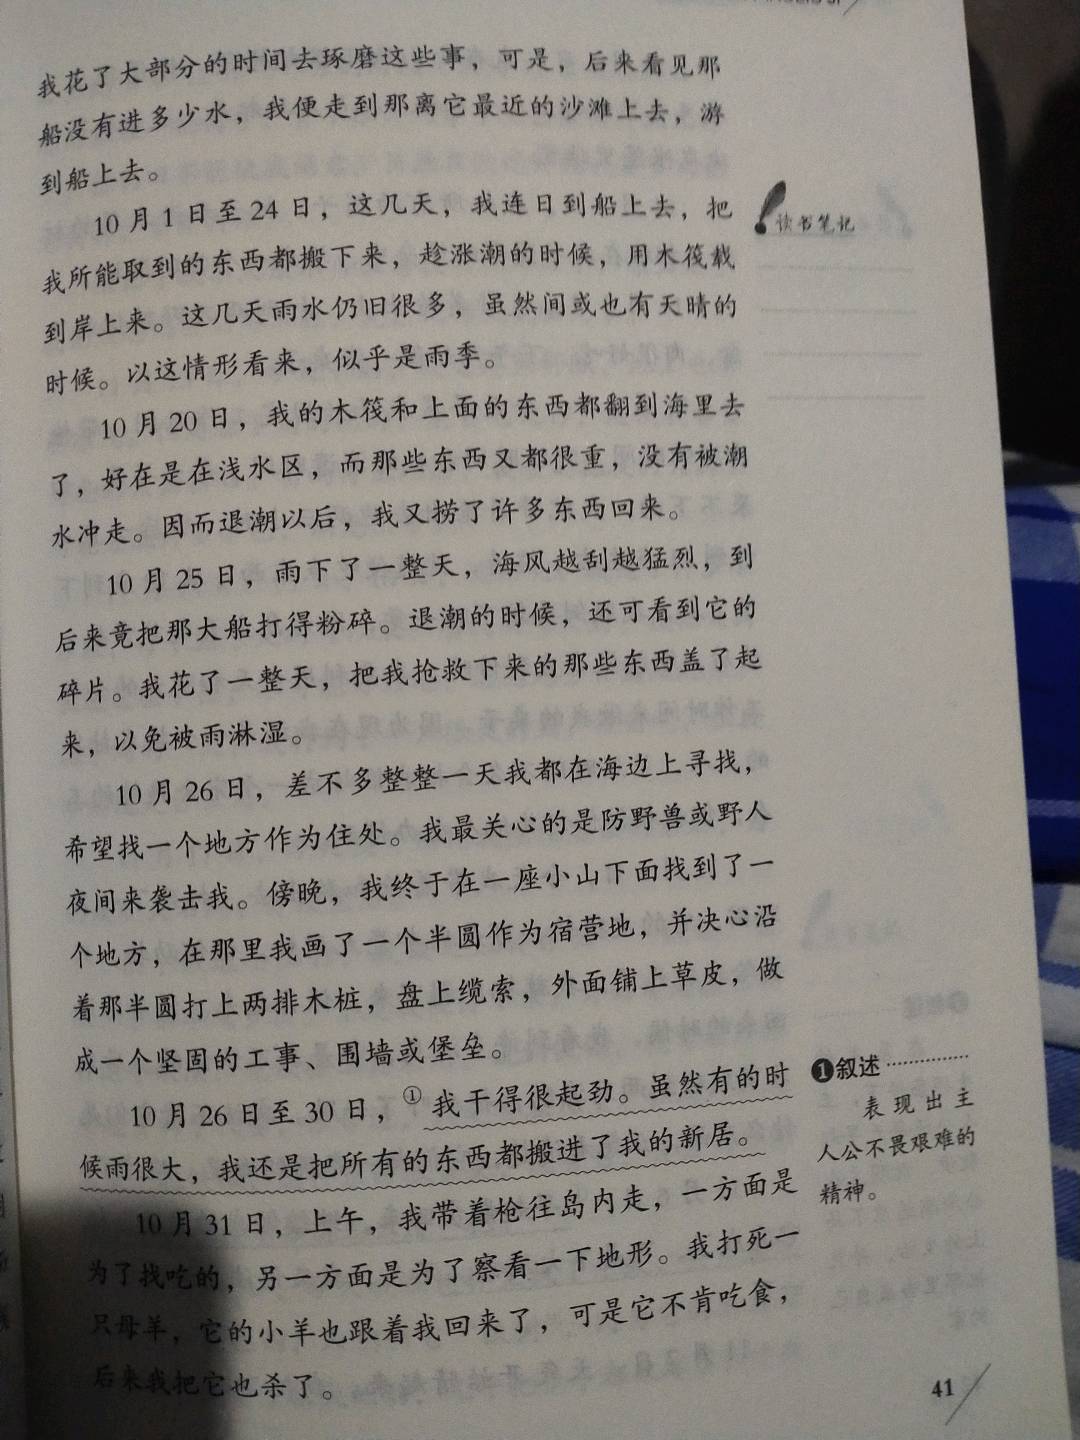 我花了大部分的时间去琢磨这些事，可是，后来看见那
船没有进多少水，我便走到那离它最近的沙滩上去，游
到船上去。
10月1日至24日，这几天，我连日到船上去，把
我所能取到的东西都搬下来，趁涨潮的时候，用木筏载
到岸上来。这几天雨水仍旧很多，虽然间或也有天晴的
时候。以这情形看来，似乎是雨季。
10月20日，我的木筏和上面的东西都翻到海里去
了，好在是在浅水区，而那些东西又都很重，没有被潮
水冲走。因而退潮以后，我又捞了许多东西回来。
10月25日，雨下了一整天，海风越刮越猛烈，到
后来竟把那大船打得粉碎。退潮的时候，还可看到它的
碎片。我花了一整天，把我抢救下来的那些东西盖了起
来，以免被雨淋湿。
10月26日，差不多整整一天我都在海边上寻找，
希望找一个地方作为住处。我最关心的是防野兽或野人
夜间来袭击我。傍晚，我终于在一座小山下面找到了一
个地方，在那里我画了一个半圆作为宿营地，并决心沿
着那半圆打上两排木桩，盘上缆索，外面铺上草皮，做
成一个坚固的工事、围墙或堡垒。
10月26日至30日，①我干得很起劲。虽然有的时
候雨很大，我还是把所有的东西都搬进了我的新居。
10月31日，上午，我带着枪往岛内走，一方面是
为了找吃的，另一方面是为了察看一下地形。我打死一
只母羊，它的小羊也跟着我回来了，可是它不肯吃食，
后来我把它也杀了。
读书笔记
❶叙述
表现出主
人公不畏艰难的
精神。
41